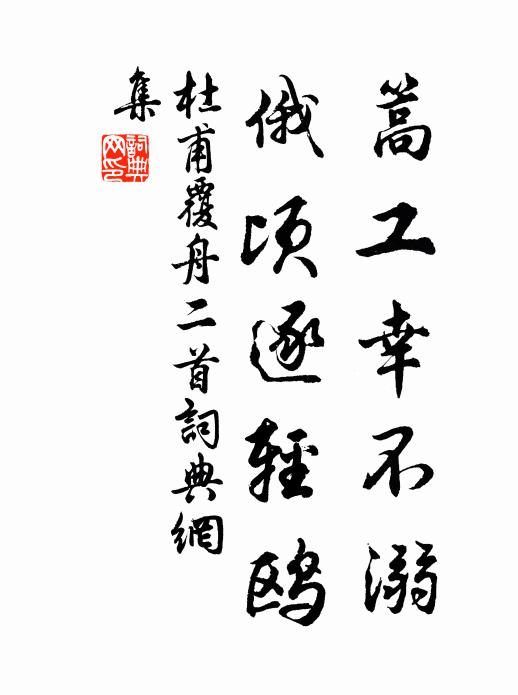 篙工幸不溺
俄顷逐輕鸥
杜甫覆舟二首詞典網
集
詞典網印